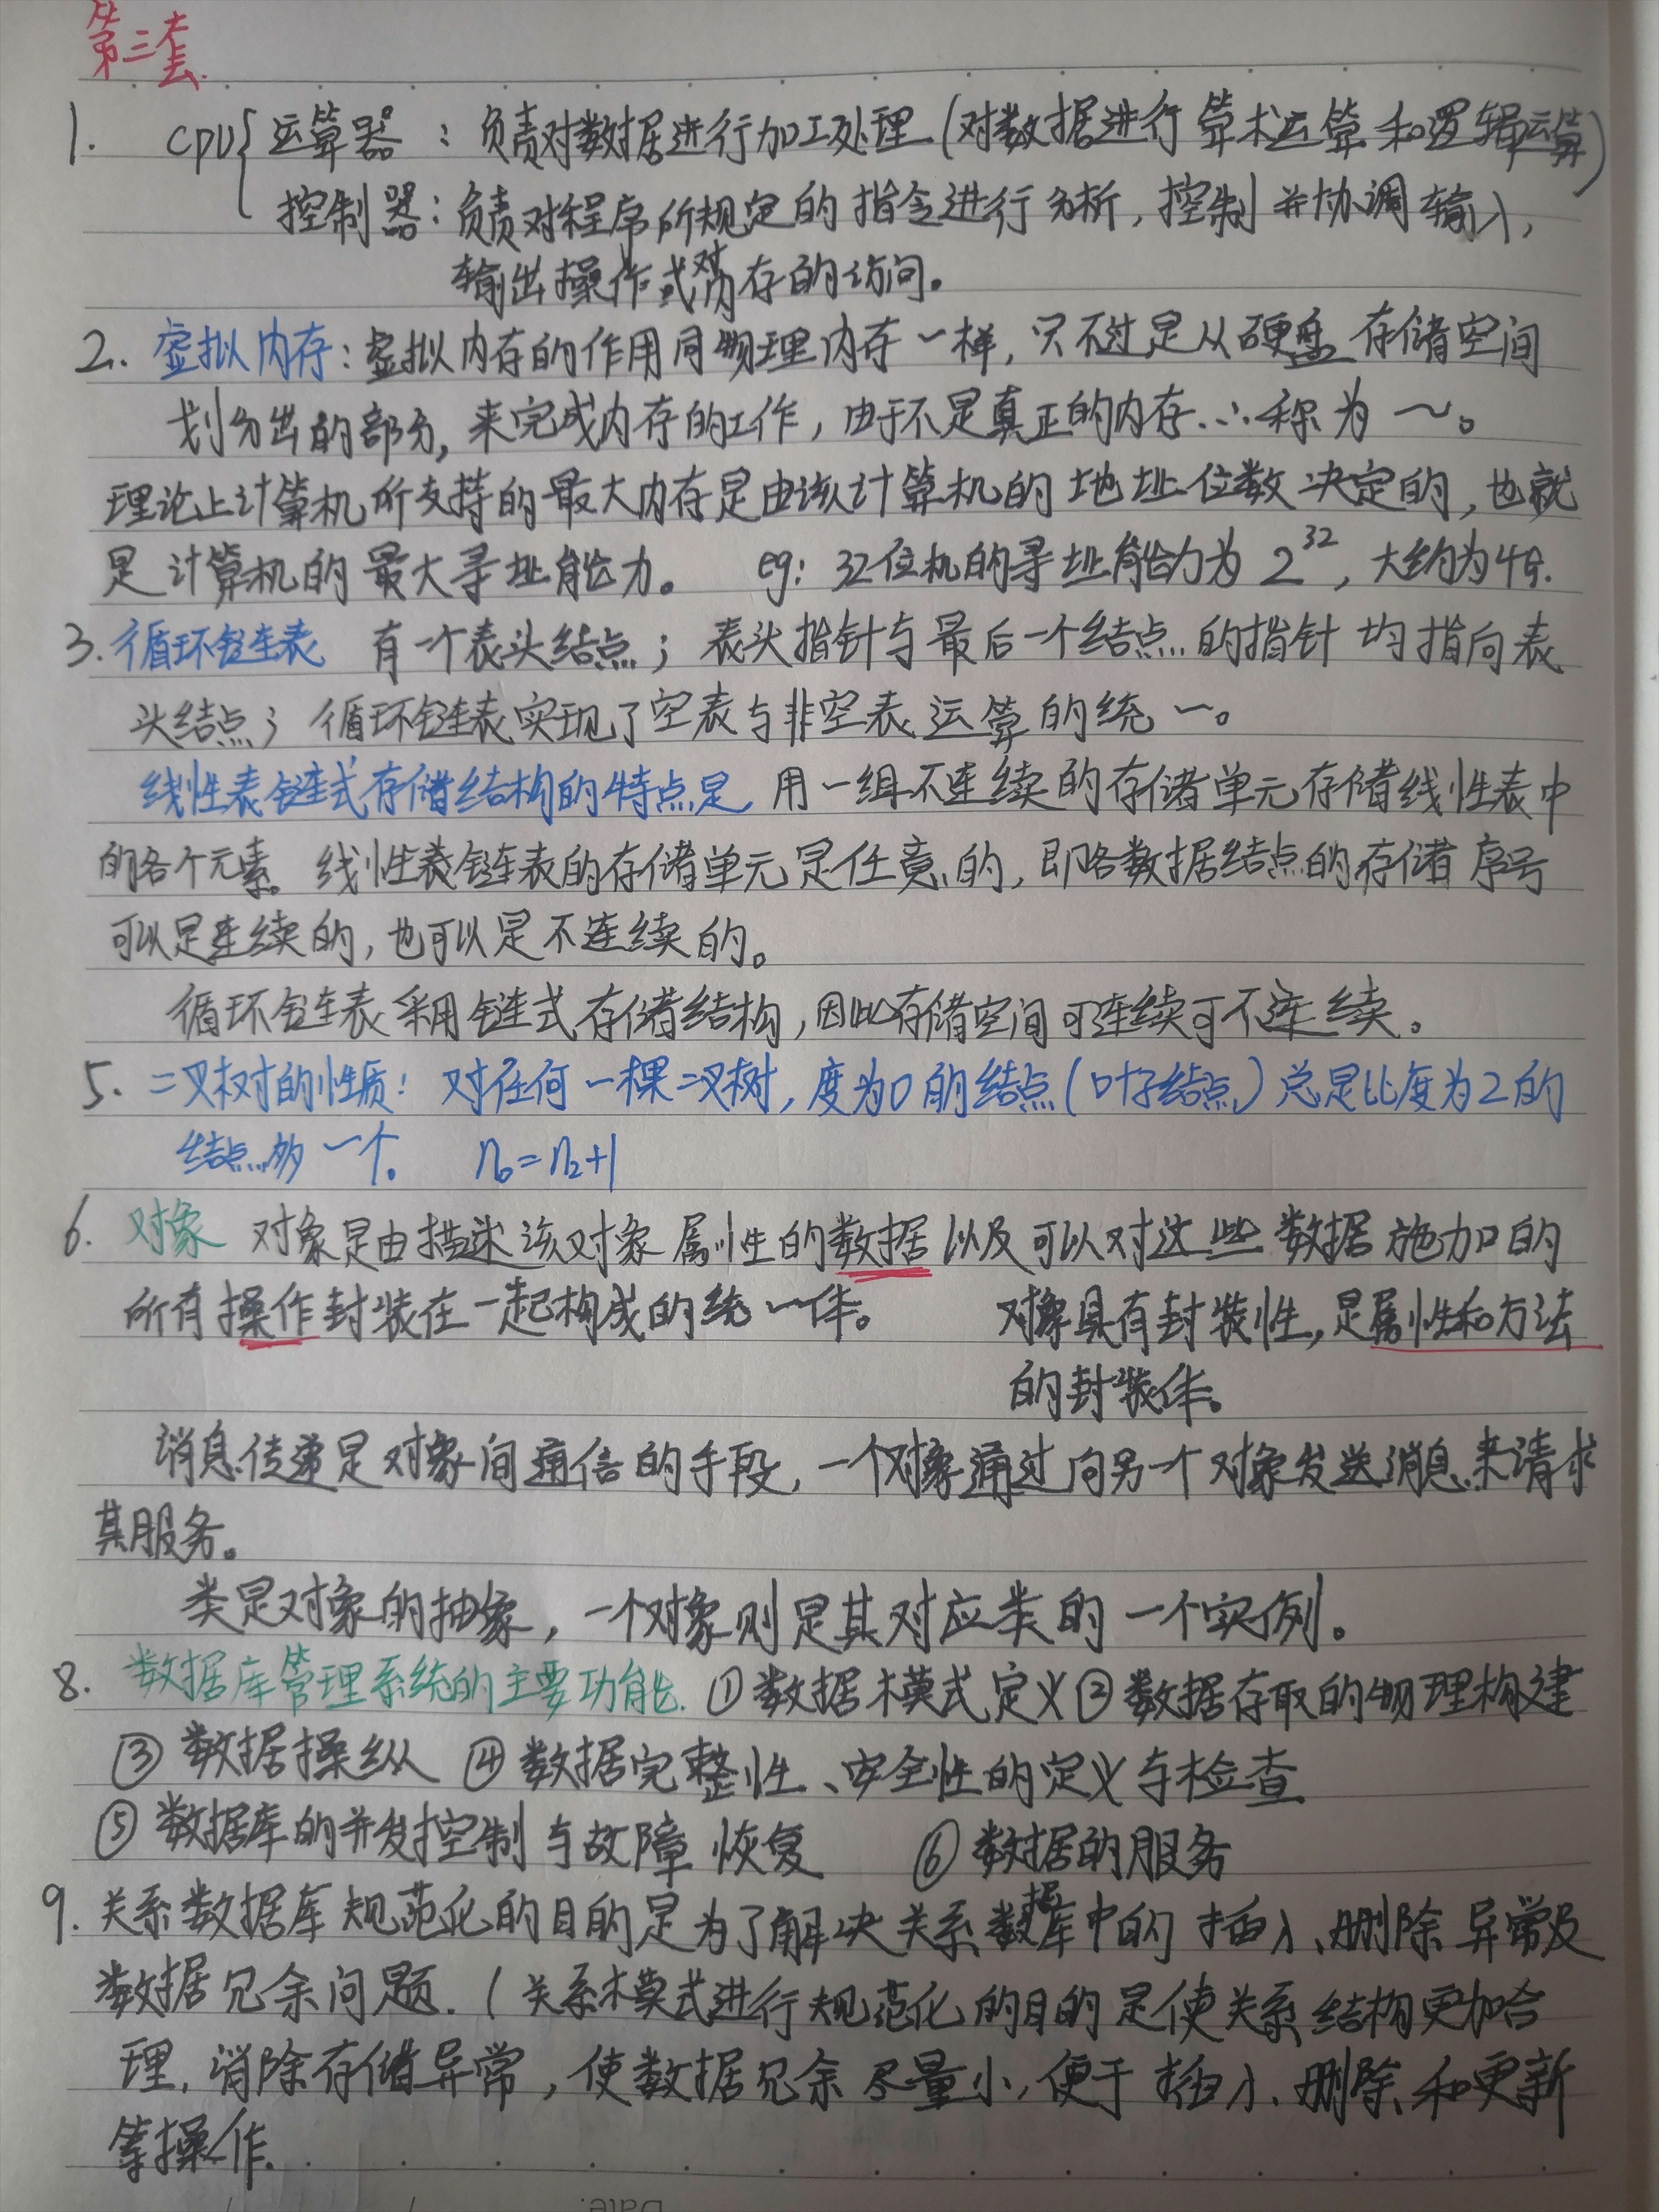 第三套
1. CPU{运算器：负责对数据进行加工处理(对数据进行算术运算和逻辑运算)
控制器：负责对程序所规定的指令进行分析，控制并协调输入，
输出操作或对内存的访问。
2. 虚拟内存：虚拟内存的作用同物理内存一样，只不过是从硬盘存储空间
划分出的部分，来完成内存的工作，由于不是真正的内存∴称为～。
理论上计算机所支持的最大内存是由该计算机的地址位数决定的，也就
是计算机的最大寻址能力。 eg：32位机的寻址能力为2^32，大约为4G.
3. 循环链表 有一个表头结点；表头指针与最后一个结点的指针均指向表
头结点；循环链表实现了空表与非空表运算的统一。
线性表链式存储结构的特点是 用一组不连续的存储单元存储线性表中
的各个元素。线性表链表的存储单元是任意的，即各数据结点的存储序号
可以是连续的，也可以是不连续的。
循环链表采用链式存储结构，因此存储空间可连续可不连续。
5. 二叉树的性质：对任何一棵二叉树，度为0的结点(叶子结点)总是比度为2的
结点多一个。 n₀=n₂+1
6. 对象 对象是由描述该对象属性的数据以及可以对这些数据施加的
所有操作封装在一起构成的统一体。 对象具有封装性，是属性和方法
的封装体。
消息传递是对象间通信的手段，一个对象通过向另一个对象发送消息来请求
其服务。
类是对象的抽象，一个对象则是其对应类的一个实例。
8. 数据库管理系统的主要功能. ①数据模式定义②数据存取的物理构建
③数据操纵 ④数据完整性、安全性的定义与检查
⑤数据库的并发控制与故障恢复 ⑥数据的服务
9. 关系数据库规范化的目的是为了解决关系数据库中的插入、删除异常及
数据冗余问题.(关系模式进行规范化的目的是使关系结构更加合
理，消除存储异常，使数据冗余尽量小，便于插入、删除和更新
等操作.
Date: